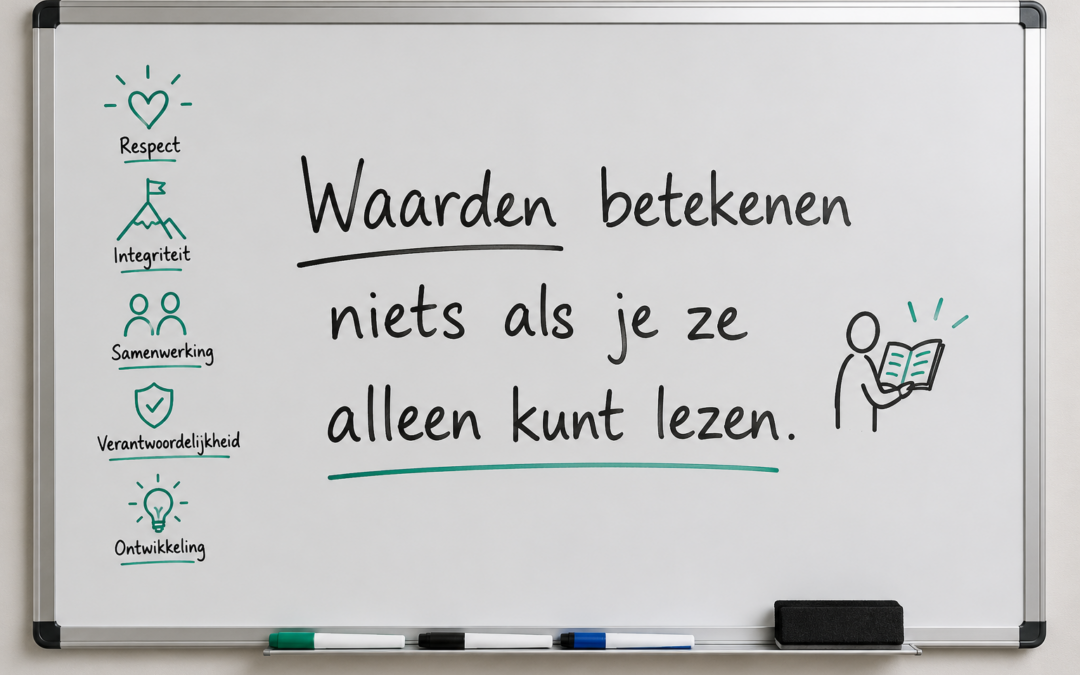 Respect
Integriteit
Samenwerking
Verantwoordelijkheid
Ontwikkeling
Waarden betekenen
niets als je ze
alleen kunt lezen.